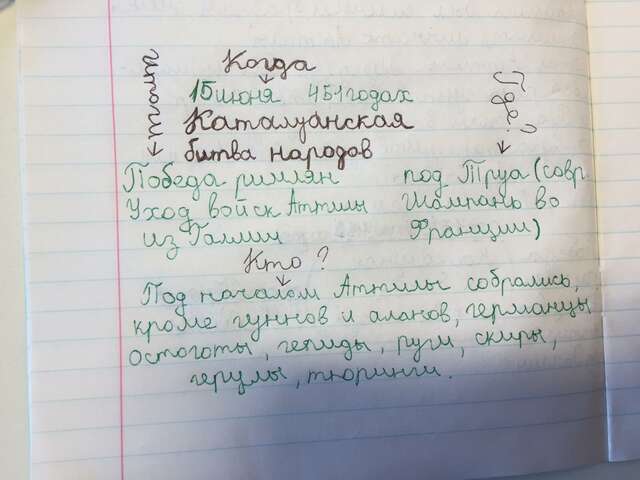 Когда
15 июня 451 годах
Каталуанская
битва народов
итоги
Где?
Победа римлян
Уход войск Аттилы
из Галлии
под Труа (совр.
Шампань во
Франции)
Кто?
Под началом Аттилы собрались,
кроме гуннов и аланов, германцы
остоготы, гепиды, руги, скиры,
герулы, тюринги.